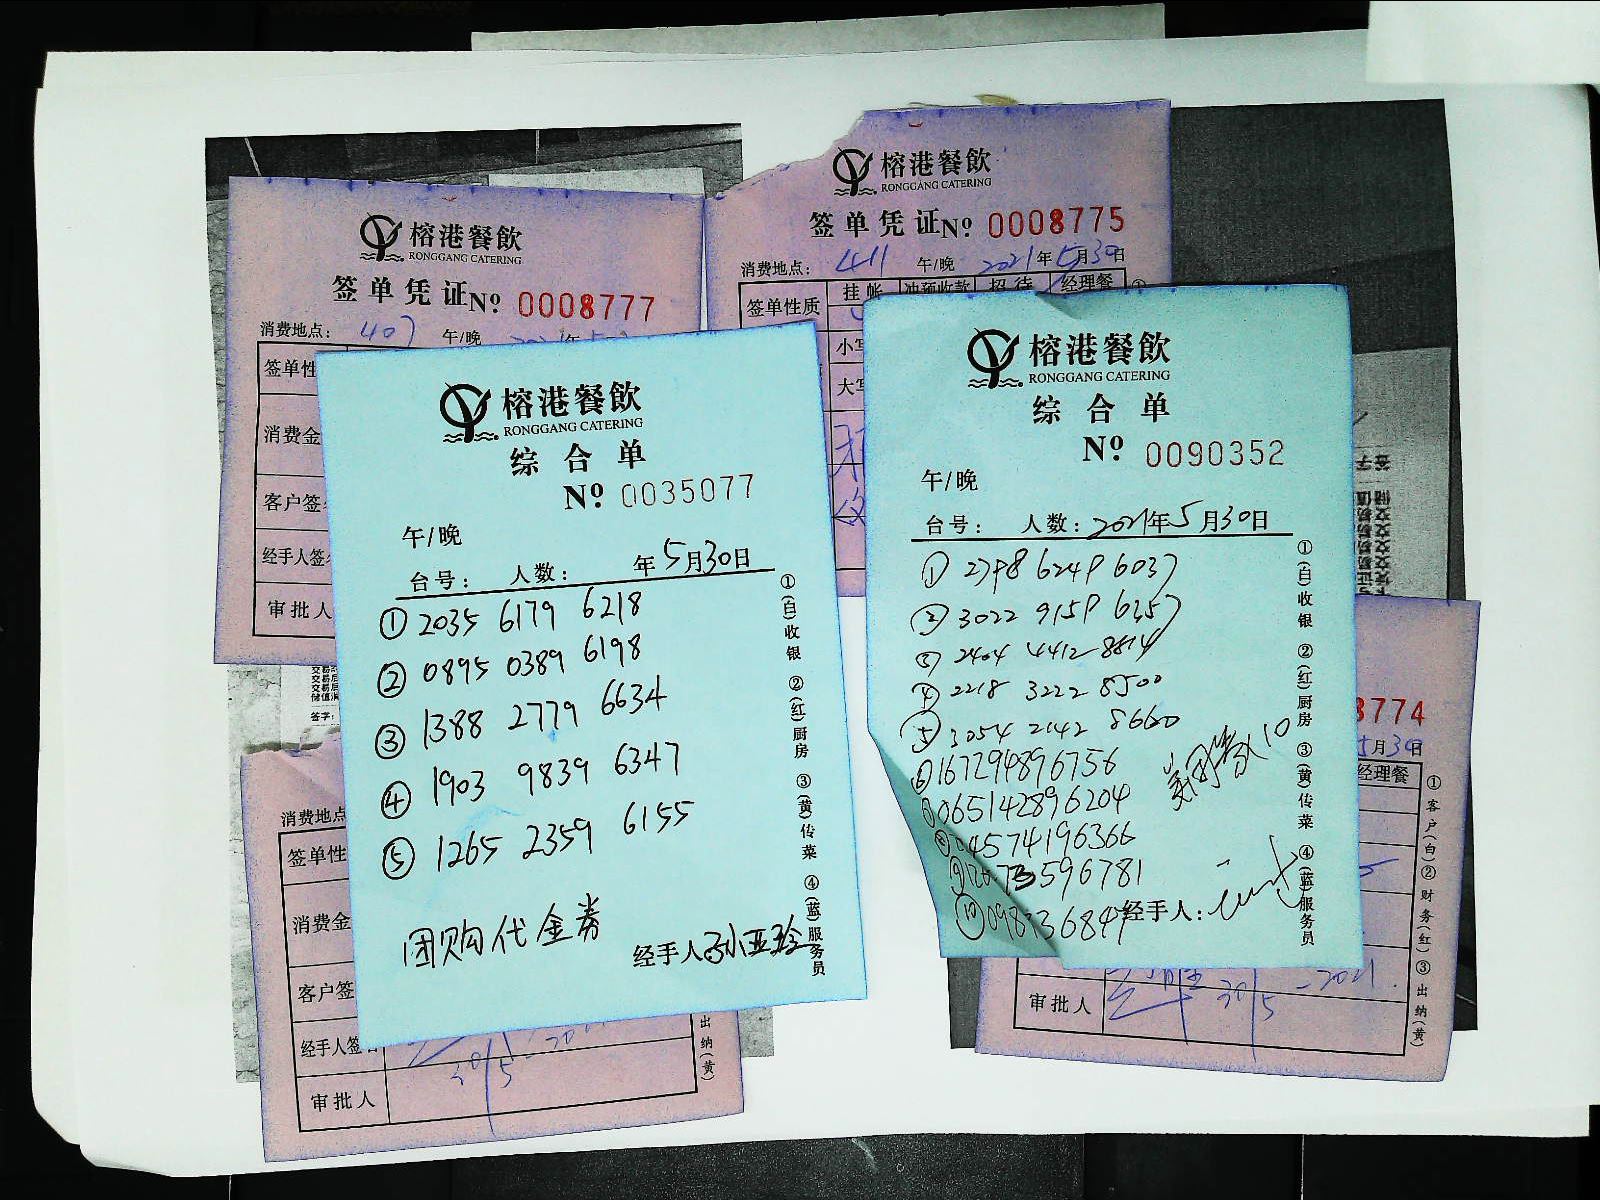 榕港餐飲
RONGGANG CATERING
签单凭证№ 0008777
消费地点: 407 午/晚
签单性
消费金
客户签
经手人签
审批人
榕港餐飲
RONGGANG CATERING
签单凭证№ 0008775
消费地点: 411 午/晚 2021年5月30日
签单性质 挂帐 冲预收款 招待 经理餐
小写
大写
榕港餐飲
RONGGANG CATERING
综合单
№ 0035077
午/晚
台号: 人数: 年5月30日
① 2035 6179 6218
② 0895 0389 6198
③ 1388 2779 6634
④ 1903 9839 6347
⑤ 1265 2359 6155
团购代金券
经手人
①(白)收银 ②(红)厨房 ③(黄)传菜 ④(蓝)服务员
榕港餐飲
RONGGANG CATERING
综合单
№ 0090352
午/晚
台号: 人数: 2021年5月30日
① 2798 6249 6037
② 3022 9159 6257
③ 2404 4412 8814
④ 2218 3222 8500
⑤ 3054 2142 8660
⑥ 167294896756
065142896204
04574196366
596781
⑩
经手人:
①(白)收银 ②(红)厨房 ③(黄)传菜 ④(蓝)服务员
消费地点
签单性
消费金
客户签
经手人签名
审批人
30/5
出纳(黄)
8774
5月30日
经理餐
审批人
30/5 -2021.
①客户(白)②财务(红)③出纳(黄)